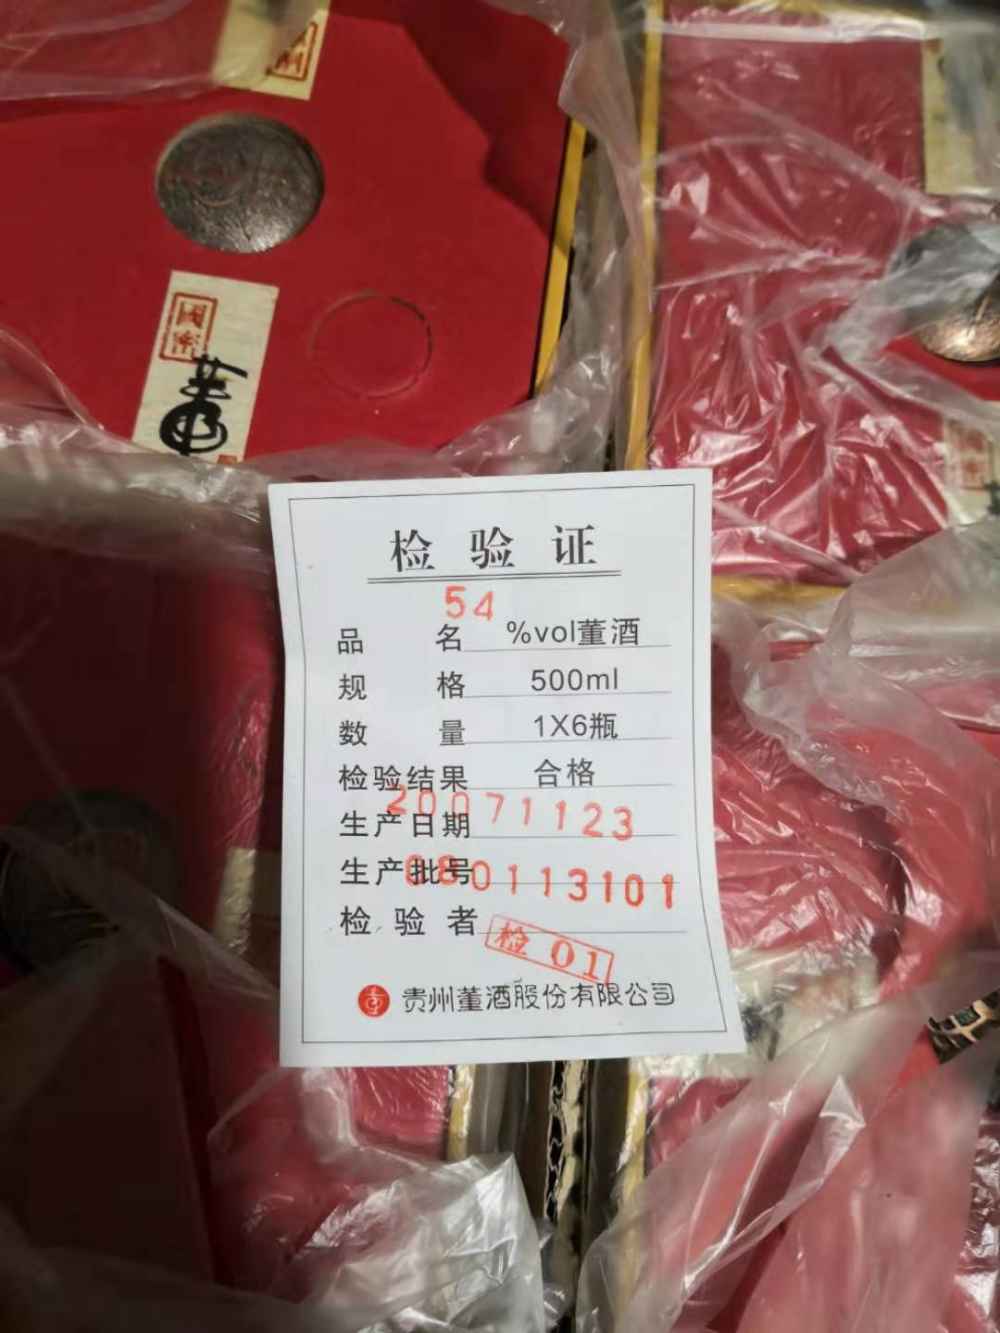 國密
董
检验证
54
品名 %vol董酒
规格 500ml
数量 1X6瓶
检验结果 合格
生产日期 20071123
生产批号 080113101
检验者 检01
贵州董酒股份有限公司